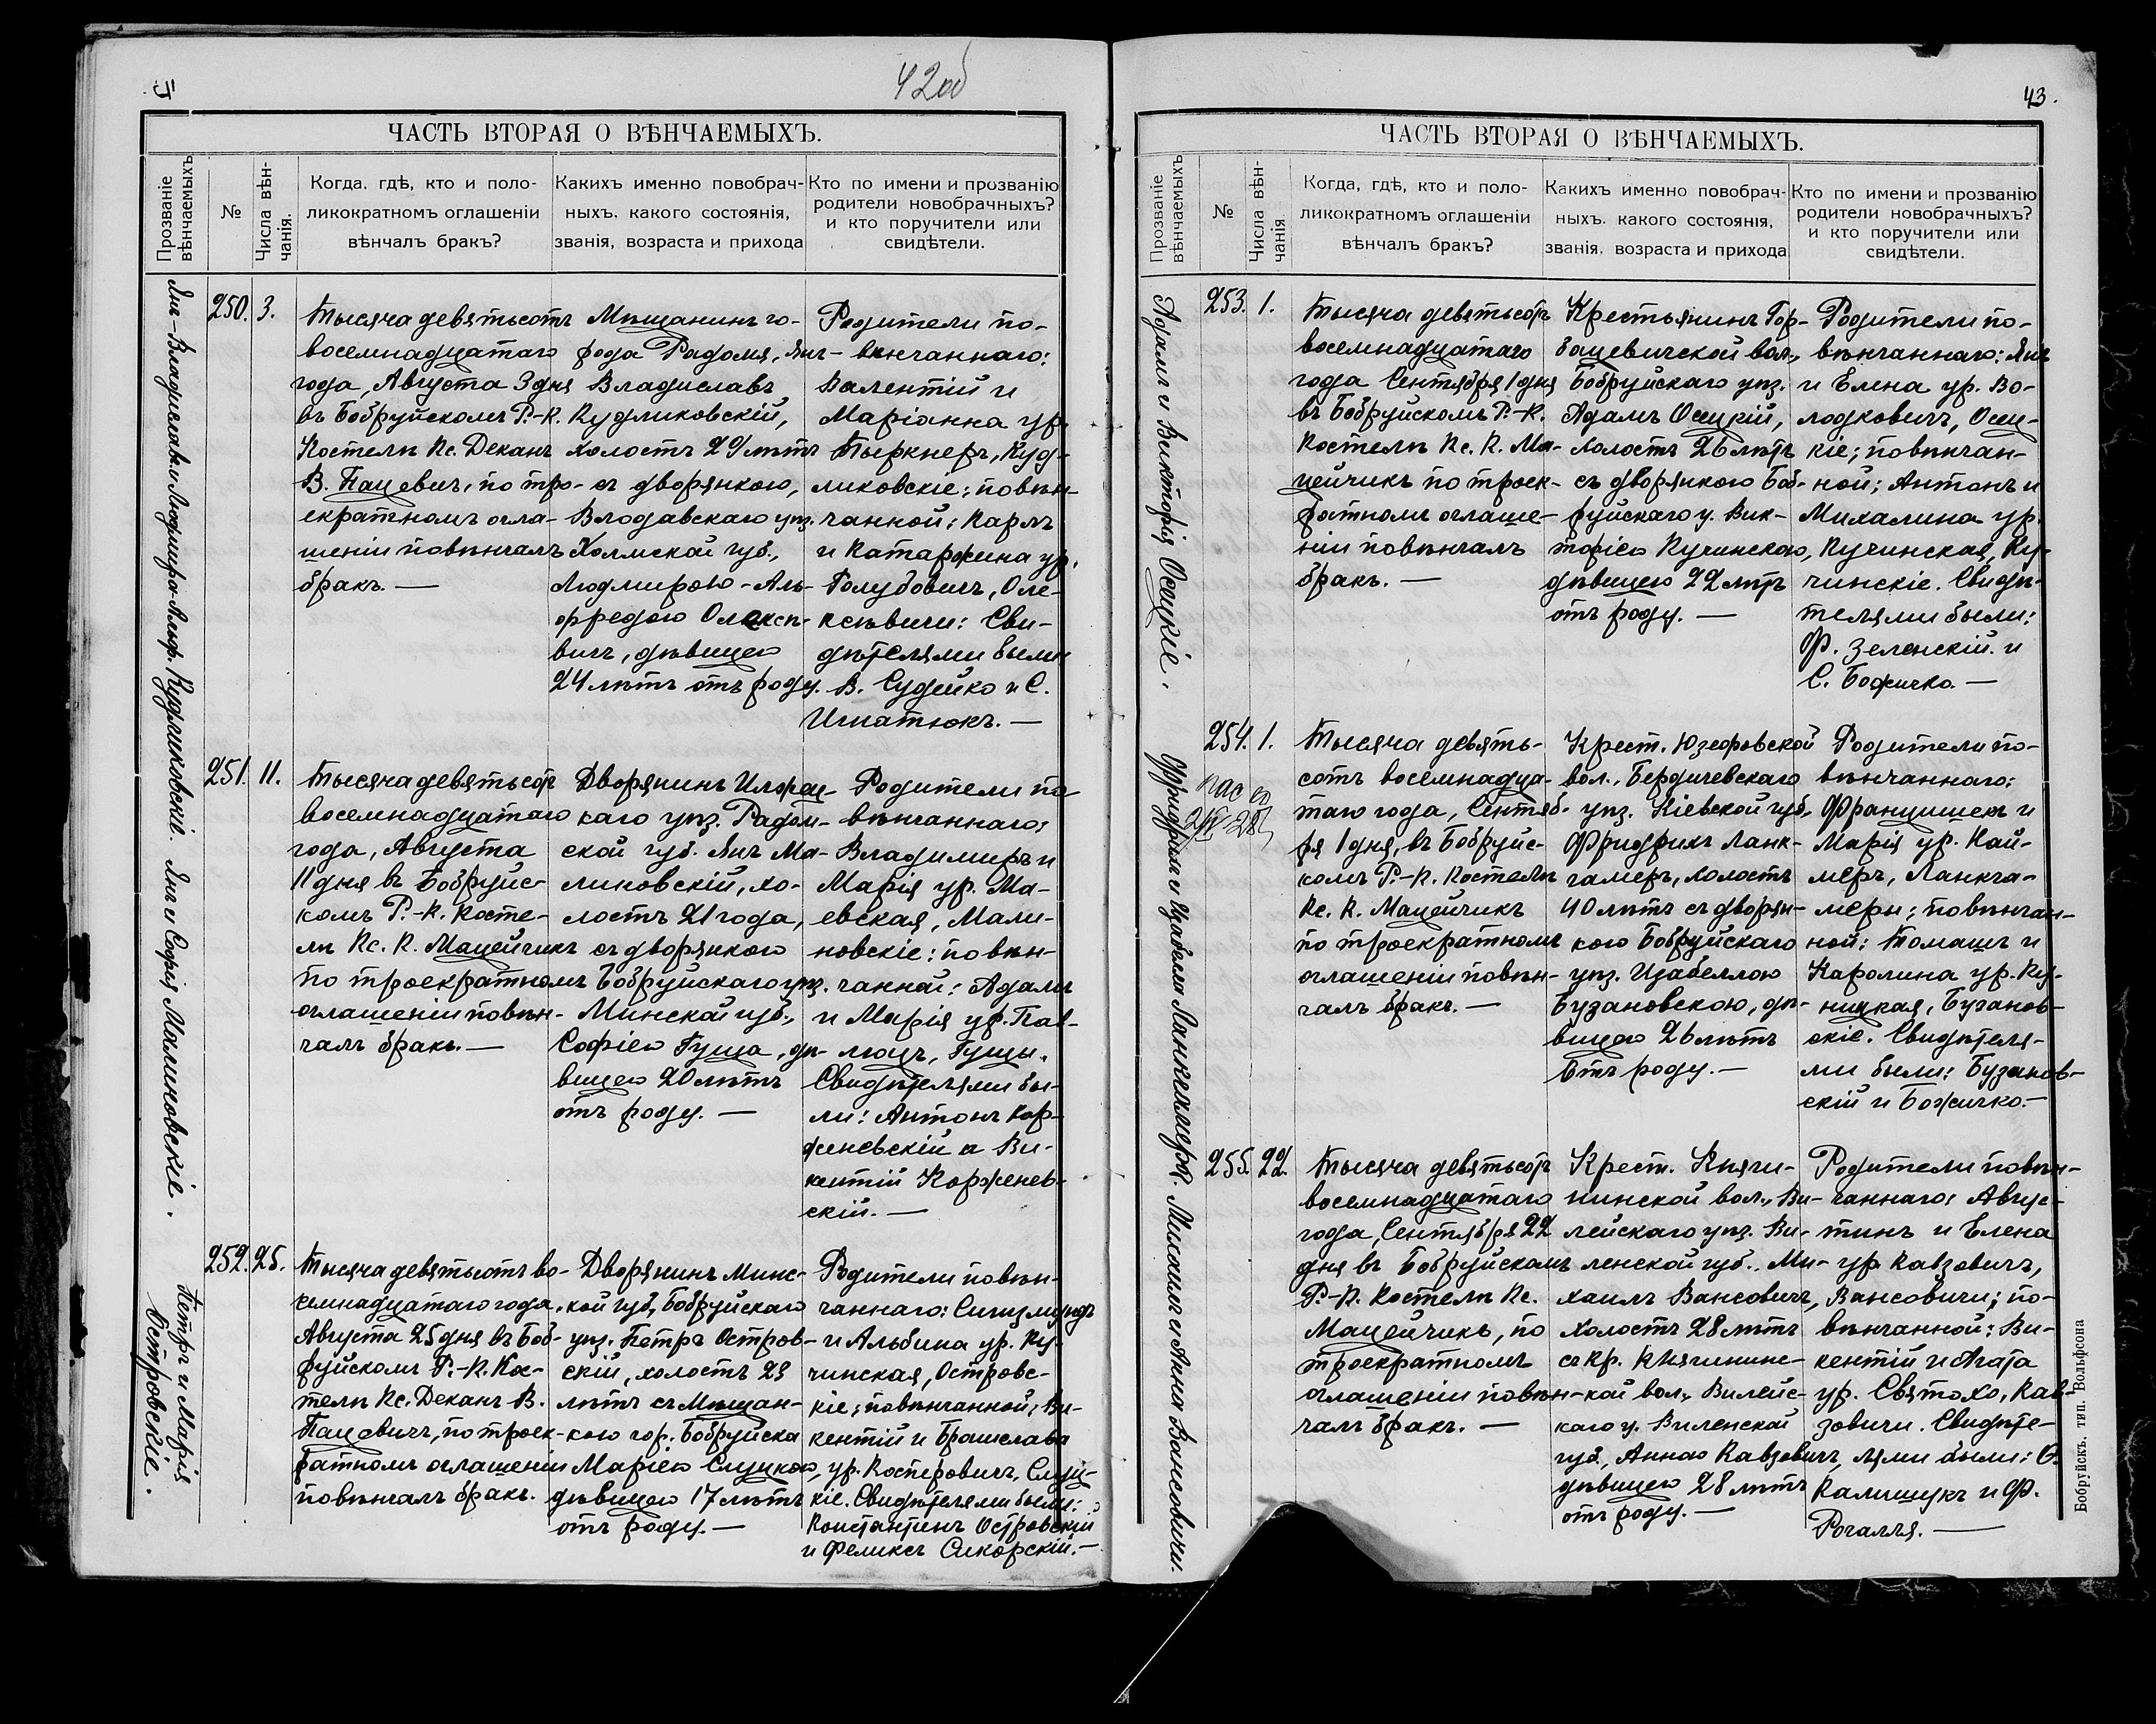 42об
ЧАСТЬ ВТОРАЯ О ВѢНЧАЕМЫХЪ.
Прозваніе вѣнчаемыхъ
№
Числа вѣнчанія.
Когда, гдѣ, кто и поло-
ликократномъ оглашеніи
вѣнчалъ бракъ?
Какихъ именно новобрач-
ныхъ, какого состоянія,
званія, возраста и прихода
Кто по имени и прозванію
родители новобрачныхъ?
и кто поручители или
свидѣтели.
Янъ-Владиславъ и Людмира-Альф. Кудликовскіе.
250. 3.
Тысяча девятьсотъ
восемнадцатаго
года, Августа 3 дня
въ Бобруйскомъ Р.-К.
Костелѣ Кс. Деканъ
В. Пацевичъ, по тро-
екратномъ огла-
шеніи повѣнчалъ
бракъ. —
Мѣщанинъ го-
рода Радомя, Янъ-
Владиславъ
Кудликовскій,
холостъ 29 лѣтъ
съ дворянкою,
Влодавскаго уѣз.
Холмской губ.,
Людмирою-Аль-
фредою Олексѣ-
вичъ, дѣвицею
24 лѣтъ отъ роду.
Родители по-
вѣнчаннаго:
Валентій и
Маріанна ур.
Тыркнеръ, Куд-
ликовскіе; повѣн-
чанной: Карлъ
и Катаржина ур.
Голубовичъ, Оле-
ксѣвичи: Сви-
дѣтелями были
В. Судейко и С.
Игнатюкъ. —
Янъ и Софія Малиновскіе.
251. 11.
Тысяча девятьсотъ
восемнадцатаго
года, Августа
11 дня въ Бобруйс-
комъ Р.-К. Косте-
лѣ Кс. К. Мацейчикъ
по троекратномъ
оглашеніи повѣн-
чалъ бракъ. —
Дворянинъ Илжец-
каго уѣз. Радом-
ской губ. Янъ Ма-
линовскій, хо-
лостъ 21 года,
съ дворянкою
Бобруйскаго уѣз.
Минской губ.,
Софіею Гуща, дѣ-
вицею 20 лѣтъ
отъ роду. —
Родители по
вѣнчаннаго:
Владимиръ и
Марія ур. Ма-
евская, Мали-
новскіе: повѣн-
чанной: Адамъ
и Марія ур. Пав-
люцъ, Гущы.
Свидѣтелями бы-
ли: Антонъ Кор-
женевскій и Ви-
кентій Корженев-
скій. —
Петръ и Марія
Островскіе.
252. 25.
Тысяча девятьсотъ во-
семнадцатаго года,
Августа 25 дня въ Боб-
руйскомъ Р.-К. Кос-
телѣ Кс. Деканъ В.
Пацевичъ, по троек-
ратномъ оглашеніи
повѣнчалъ бракъ.
Дворянинъ Минс-
кой губ. Бобруйскаго
уѣз. Петръ Остров-
скій, холостъ 23
лѣтъ съ Мѣщан-
кою гор. Бобруйска
Маріею Слуцкою,
дѣвицею 17 лѣтъ
отъ роду. —
Родители повѣн-
чаннаго: Сигизмундъ
и Альбина ур. Ку-
чинская, Островс-
кіе; повѣнчанной: Ви-
кентій и Брониславa
ур. Костеровичъ, Слуц-
кіе. Свидѣтелями были:
Константинъ Островскій
и Феликсъ Сикорскій. —
43.
ЧАСТЬ ВТОРАЯ О ВѢНЧАЕМЫХЪ.
Прозваніе вѣнчаемыхъ
№
Числа вѣнчанія.
Когда, гдѣ, кто и поло-
ликократномъ оглашеніи
вѣнчалъ бракъ?
Какихъ именно новобрач-
ныхъ, какого состоянія,
званія, возраста и прихода
Кто по имени и прозванію
родители новобрачныхъ?
и кто поручители или
свидѣтели.
Адамъ и Викторія Осицкіе.
253. 1.
Тысяча девятьсотъ
восемнадцатаго
года Сентября 1 дня
въ Бобруйскомъ Р.-К.
Костелѣ Кс. К. Ма-
цейчикъ по троек-
ратномъ оглаше-
ніи повѣнчалъ
бракъ. —
Крестьянинъ Гор-
бацевичской вол.,
Бобруйскаго уѣз.
Адамъ Осицкій,
холостъ 26 лѣтъ
съ дворянкою Боб-
руйскаго у. Вик-
торіею Кучинскою,
дѣвицею 22 лѣтъ
отъ роду. —
Родители по-
вѣнчаннаго: Янъ
и Елена ур. Во-
лодковичъ, Осиц-
кіе; повѣнчан-
ной; Антонъ и
Михалина ур.
Кучинская, Ку-
чинскіе. Свидѣ-
телями были:
Ф. Зеленскій и
С. Божичко. —
Фридрихъ и Изабелла Ланкгамеръ.
254. 1.
Тысяча девять-
сотъ восемнадца-
таго года, Сентяб-
ря 1 дня, въ Бобруйс-
комъ Р.-К. Костелѣ
Кс. К. Мацейчикъ
по троекратномъ
оглашеніи повѣн-
чалъ бракъ. —
Крест. Юзефовской
вол., Бердичевскаго
уѣз. Кіевской губ.
Фридрихъ Ланк-
гамеръ, холостъ
40 лѣтъ съ дворян-
кою Бобруйскаго
уѣз. Изабеллою
Бузановскою, дѣ-
вицею 26 лѣтъ
отъ роду. —
Родители по-
вѣнчаннаго:
Францишекъ и
Марія ур. Кай-
меръ, Ланкга-
меры; повѣнчан-
ной: Томашъ и
Каролина ур. Ку-
ницкая, Бузанов-
скіе. Свидѣтеля-
ми были: Бузанов-
скій и Божичко. —
Михаилъ и Анна Вансовичи.
255. 22.
Тысяча девятьсотъ
восемнадцатаго
года, Сентября 22
дня въ Бобруйскомъ
Р.-К. Костелѣ Кс.
Мацейчикъ, по
троекратномъ
оглашеніи повѣн-
чалъ бракъ. —
Крест. Княги-
нинской вол., Ви-
лейскаго уѣз. Ви-
ленской губ. Ми-
хаилъ Вансовичъ,
холостъ 28 лѣтъ
съ кр. Княгининс-
кой вол., Вилейс-
каго у. Виленской
губ., Анною Кавзовичъ,
дѣвицею 28 лѣтъ
отъ роду. —
Родители повѣн-
чаннаго: Авгус-
тинъ и Елена
ур. Кавзовичъ,
Вансовичи; по-
вѣнчанной: Ви-
кентій и Агата
ур. Святохо, Кав-
зовичи. Свидѣте-
лями были: О.
Калишукъ и Ф.
Рогалля. —
Бобруйскъ. тип. Вольфсона